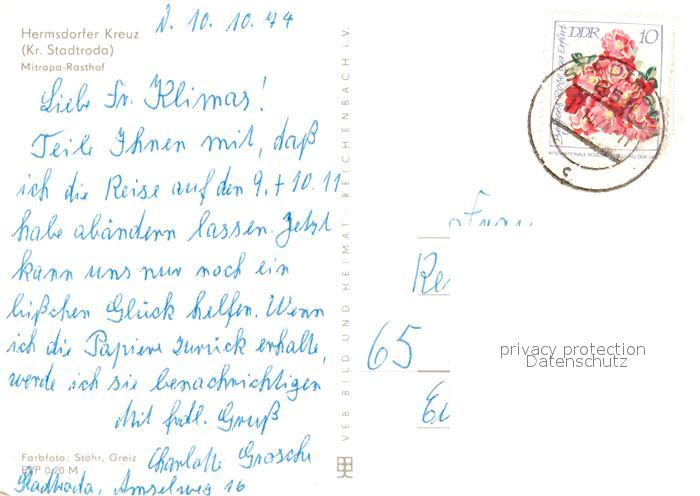 d. 10. 10. 74
Hermsdorfer Kreuz
(Kr. Stadtroda)
Mitropa-Rasthof
Liebe Fr. Klimas!
Teile Ihnen mit, daß
ich die Reise auf den 9. + 10. 11
habe abändern lassen. Jetzt
kann uns nur noch ein
bißchen Glück helfen. Wenn
ich die Papiere zurück erhalte,
werde ich sie benachrichtigen
Mit frdl. Gruß
Charlotte Grosche
Stadtroda, Amselweg 16
Farbfoto: Stöhr, Greiz
EVP 0,20 M
VEB BILD UND HEIMAT · REICHENBACH i. V.
DDR 10
INTERNATIONALE
Frau
65
privacy protection
Datenschutz